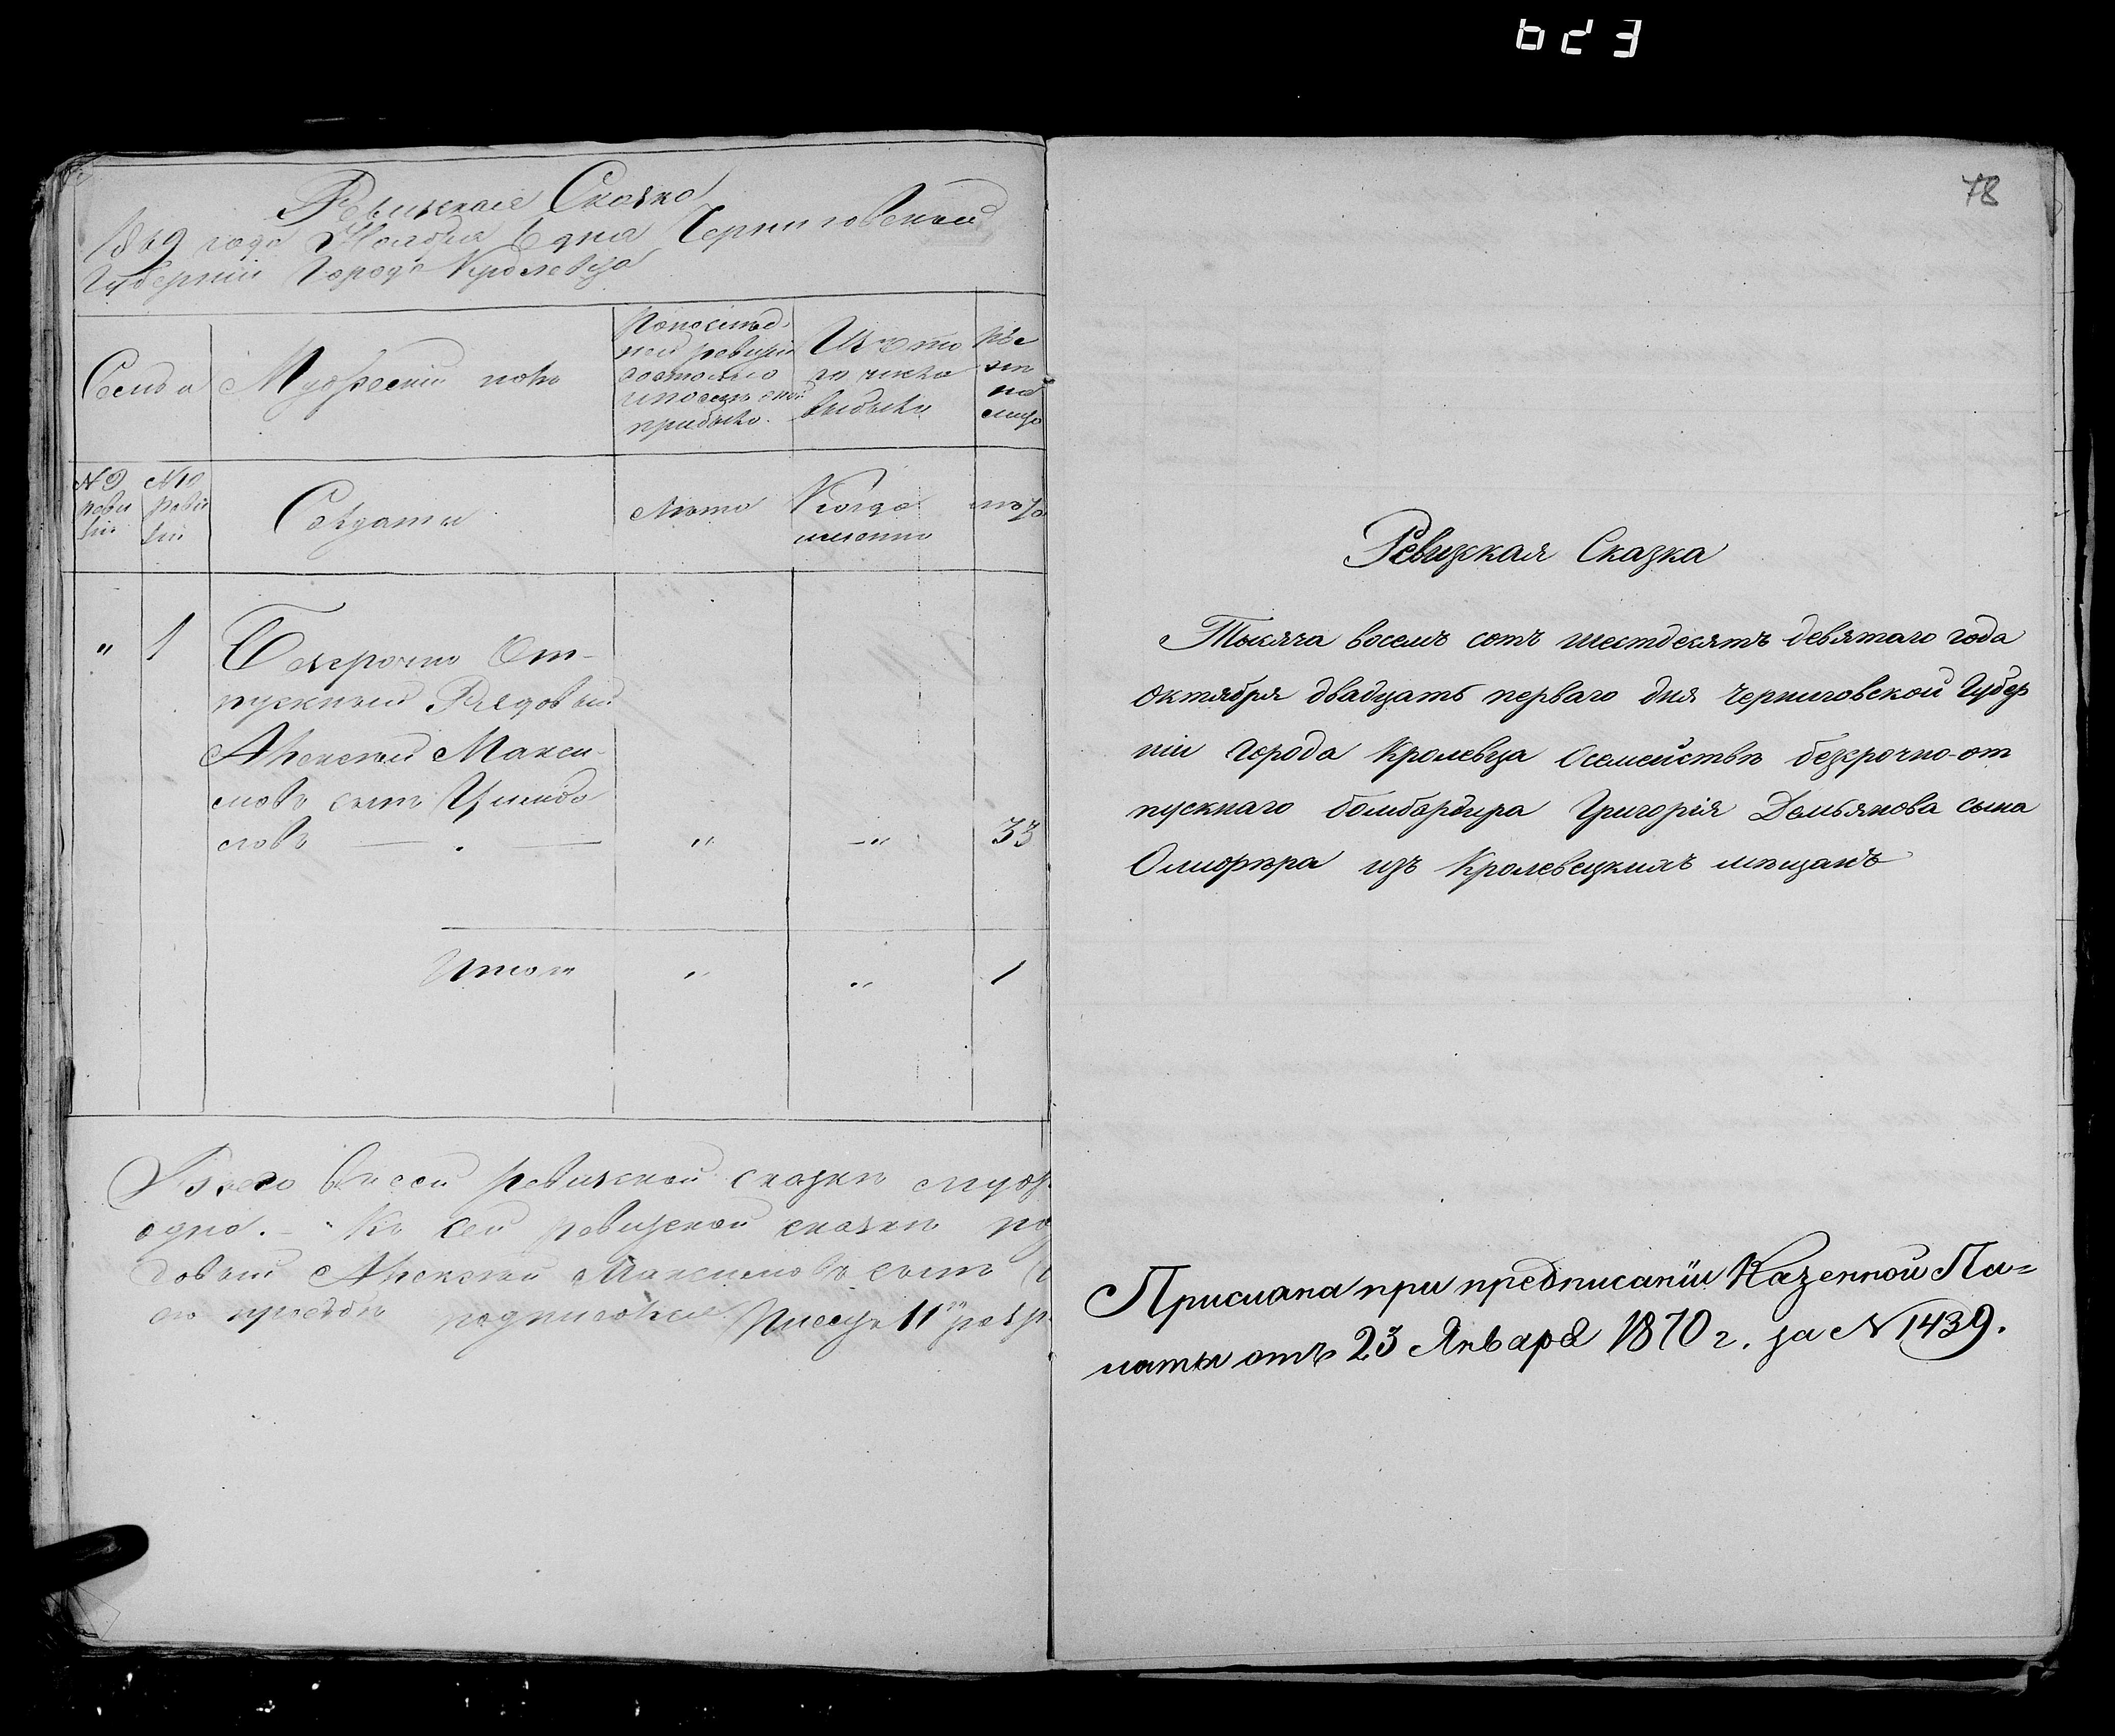 Ревизская Сказка
1869 года Ноября 6 дня Черниговской
Губернии Города Кролевца
Семьи
Мужескій полъ
Попослѣд
ней ревизіи
состояло
ипослѣ оной
прибыло.
Изъ то
го числа
выбыло
Нынѣ
лицо
№9 реви зіи
№10 реви зіи
Солдаты
лѣта
Когда
именно
лѣта
" 1 Безсрочно От-
пускный Рядовый
Алексѣй Макси-
мовъ сынъ
" " 33
Итого " " 1
Всего въ сей ревизской сказкѣ
одна. - Къ сей ревизской сказкѣ ря
довый Алексѣй Максимовъ сынъ
его прозбѣ подписался Писецъ 11го разр
78
Ревизская Сказка
Тысяча восемъ сотъ шестдесятъ девятаго года
Октября двадцать перваго дня Черниговской Губер
ніи Города Кролевца Осемействѣ безсрочно-от
пускнаго бомбардира Григорія Демьянова сына
изъ Кролевецкихъ мѣщанъ
Прислана при предписаніи Казенной Па=
латы отъ 23 Января 1870 г. за №1439.